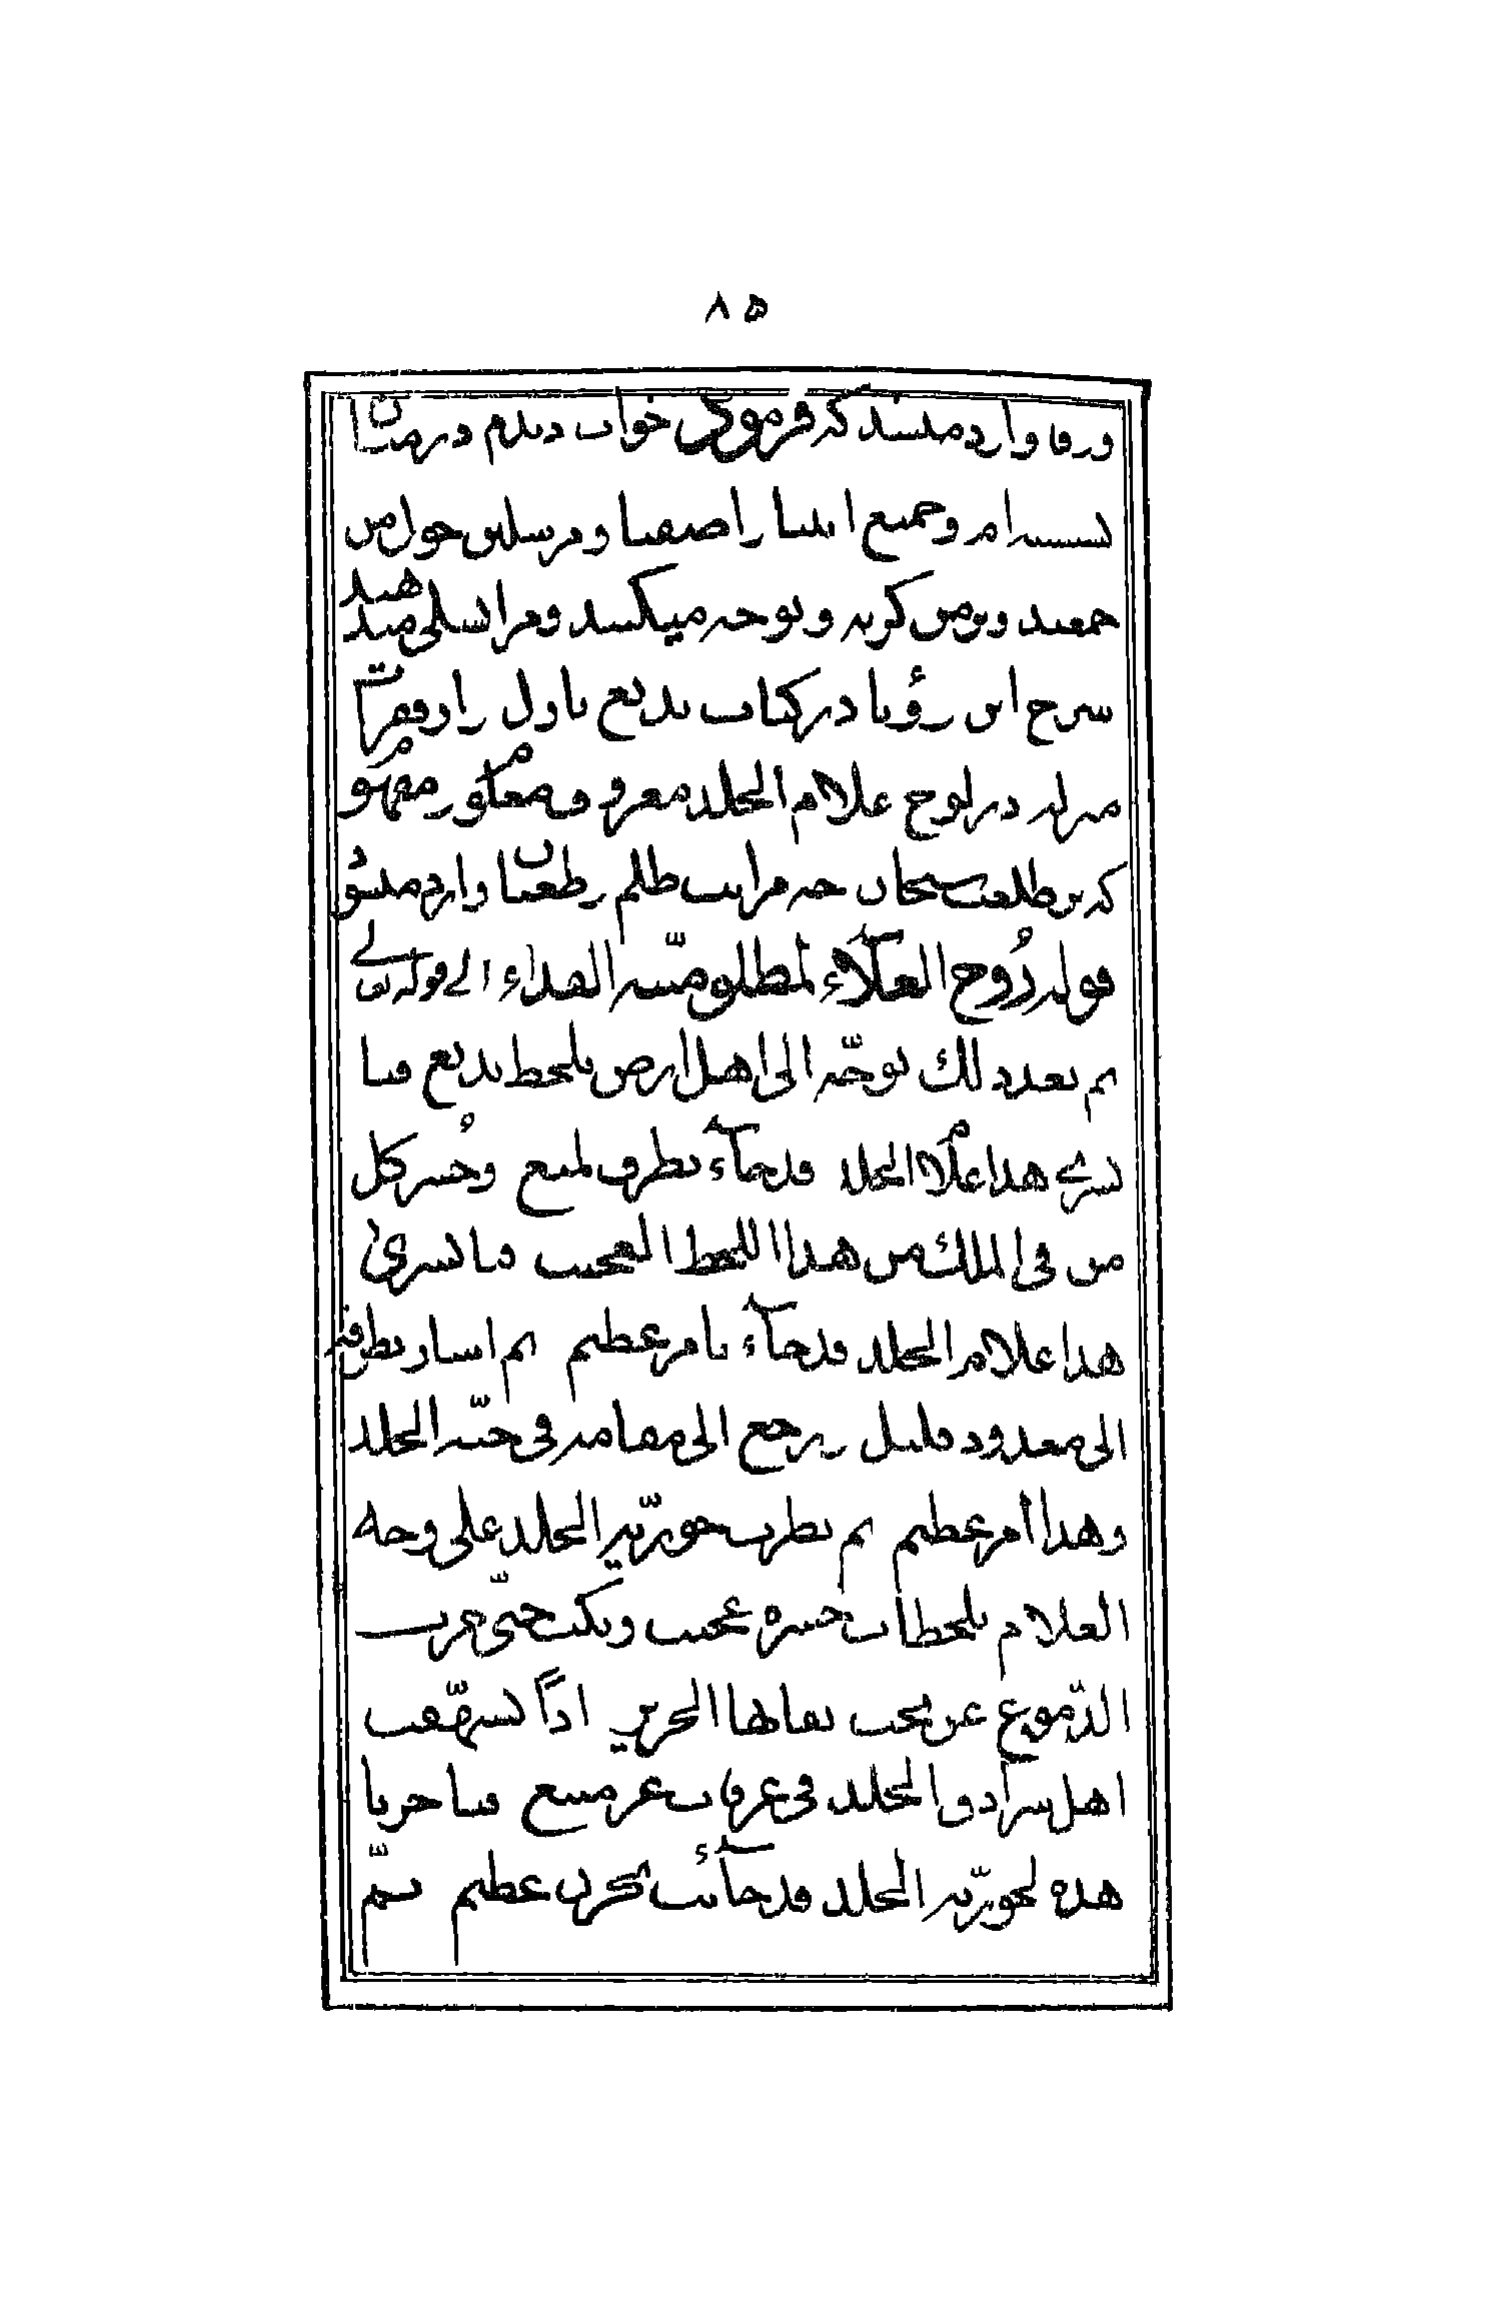 ٨٥
ورقا وارد میشد که فرمودی خواب دیدم در میان
نشسته‌ام و جمیع انبیا و اصفیا و مرسلین حول من
جمعند و بر من گریه و نوحه میکنند و مرا تسلی میدهند
شرح این رؤیا در کتاب بدیع نازل و از فقرات
منزله در لوح غلام الخلد معروف و معلوم و مفهوم
که بر طلعت سبحان چه مراتب ظلم و طغیان وارد میشود
قوله رُوح العلآء لمظلومیّته الفداء الی قوله تعالی
ثم بعد ذلك توجّه الی اهل ارض بلحظ بدیع فیا
بشری هذا غلام الخلد قد جآء بطرف لمیع وحُشر کل
من فی الملك من هذا اللحظ العجیب فیا بشری
هذا غلام الخلد قد جآء بامر عظیم ثم اشار بطرفه
الی معدود قلیل و رجع الی مقامه فی جنّة الخلد
وهذا أمر عظیم ثم نظرت حوریّة الخلد علی وجه
الغلام بلحظات حسرة عجیب وبکت حتّی جرت
الدّموع عن تحت نقابها الحریر اذاً تشهّقت
اهل سرآدق الخلد فی غرفات عز منیع فیا حزنا
هذه لحوریّة الخلد قد جآئت بحزن عظیم ثمّ